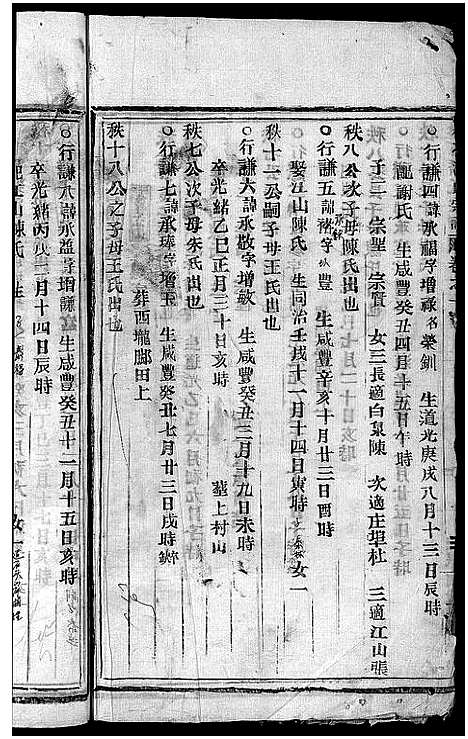 ○行謙四諱承福字增祿名榮釧 生道光庚戌八月十三日辰時
配謝氏 生咸豐癸丑四月十五日午時
子三 宗聖 宗賢 女三長適白泉陳 次適庄埕杜 三適江山張
秩八公次子母陳氏出也
○行謙五諱 字 豐 生咸豐辛亥十月廿三日酉時
娶江山陳氏 生同治壬戌十一月十四日寅時 女一
秩十一公嗣子母王氏出也
○行謙六諱承敬字增敬 生咸豐癸丑三月十九日未時
卒光緒乙巳正月三十日亥時 塟上村山
秩七公次子母朱氏出也
○行謙七諱承琫字增玉 生咸豐癸丑七月廿三日戌時
葬西壠脚田上
秩十八公之子母王氏出也
○行謙八諱承益字增謙 生咸豐癸丑十二月十五日亥時
卒光緒丙 二月十四日辰時
山陳氏 生 女一